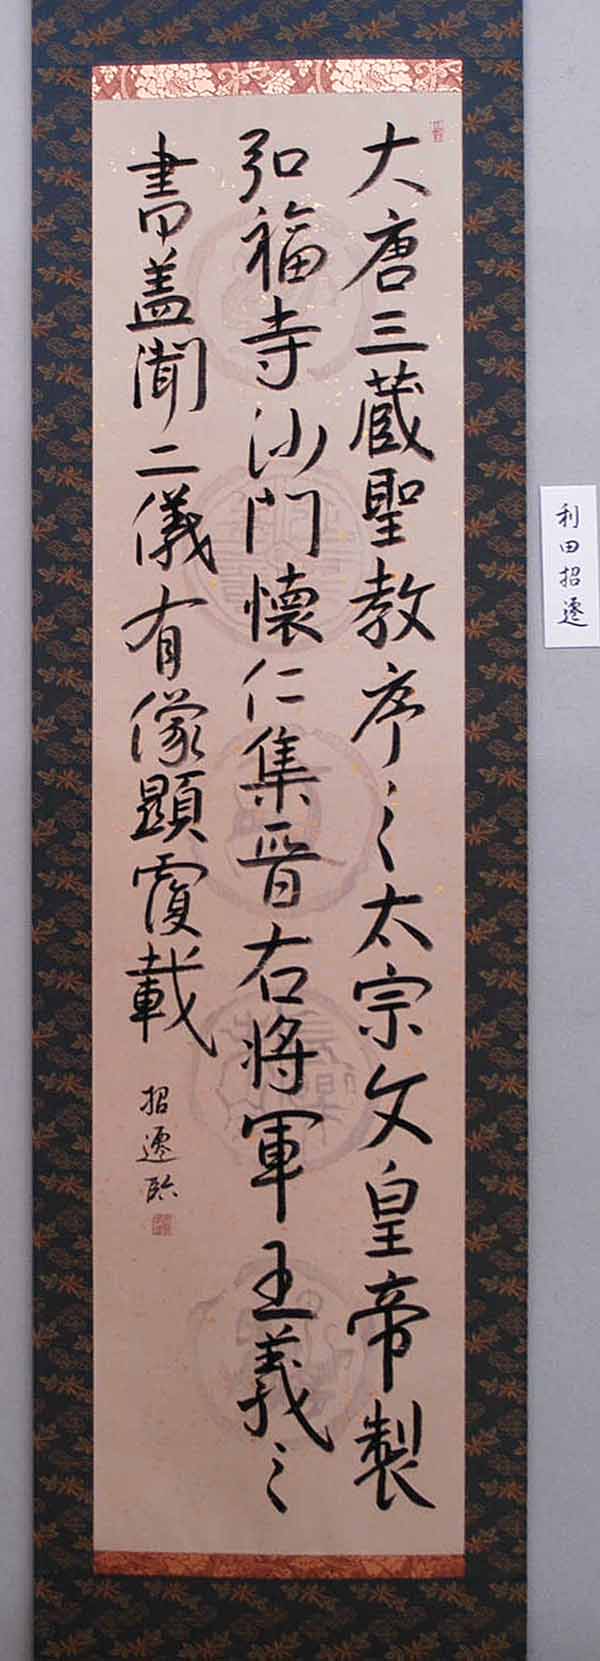 大唐三蔵聖教序之太宗文皇帝製
弘福寺沙門懐仁集晋右将軍王義之
書盖聞二儀有像顕覆載
招遷臨
利田招遷